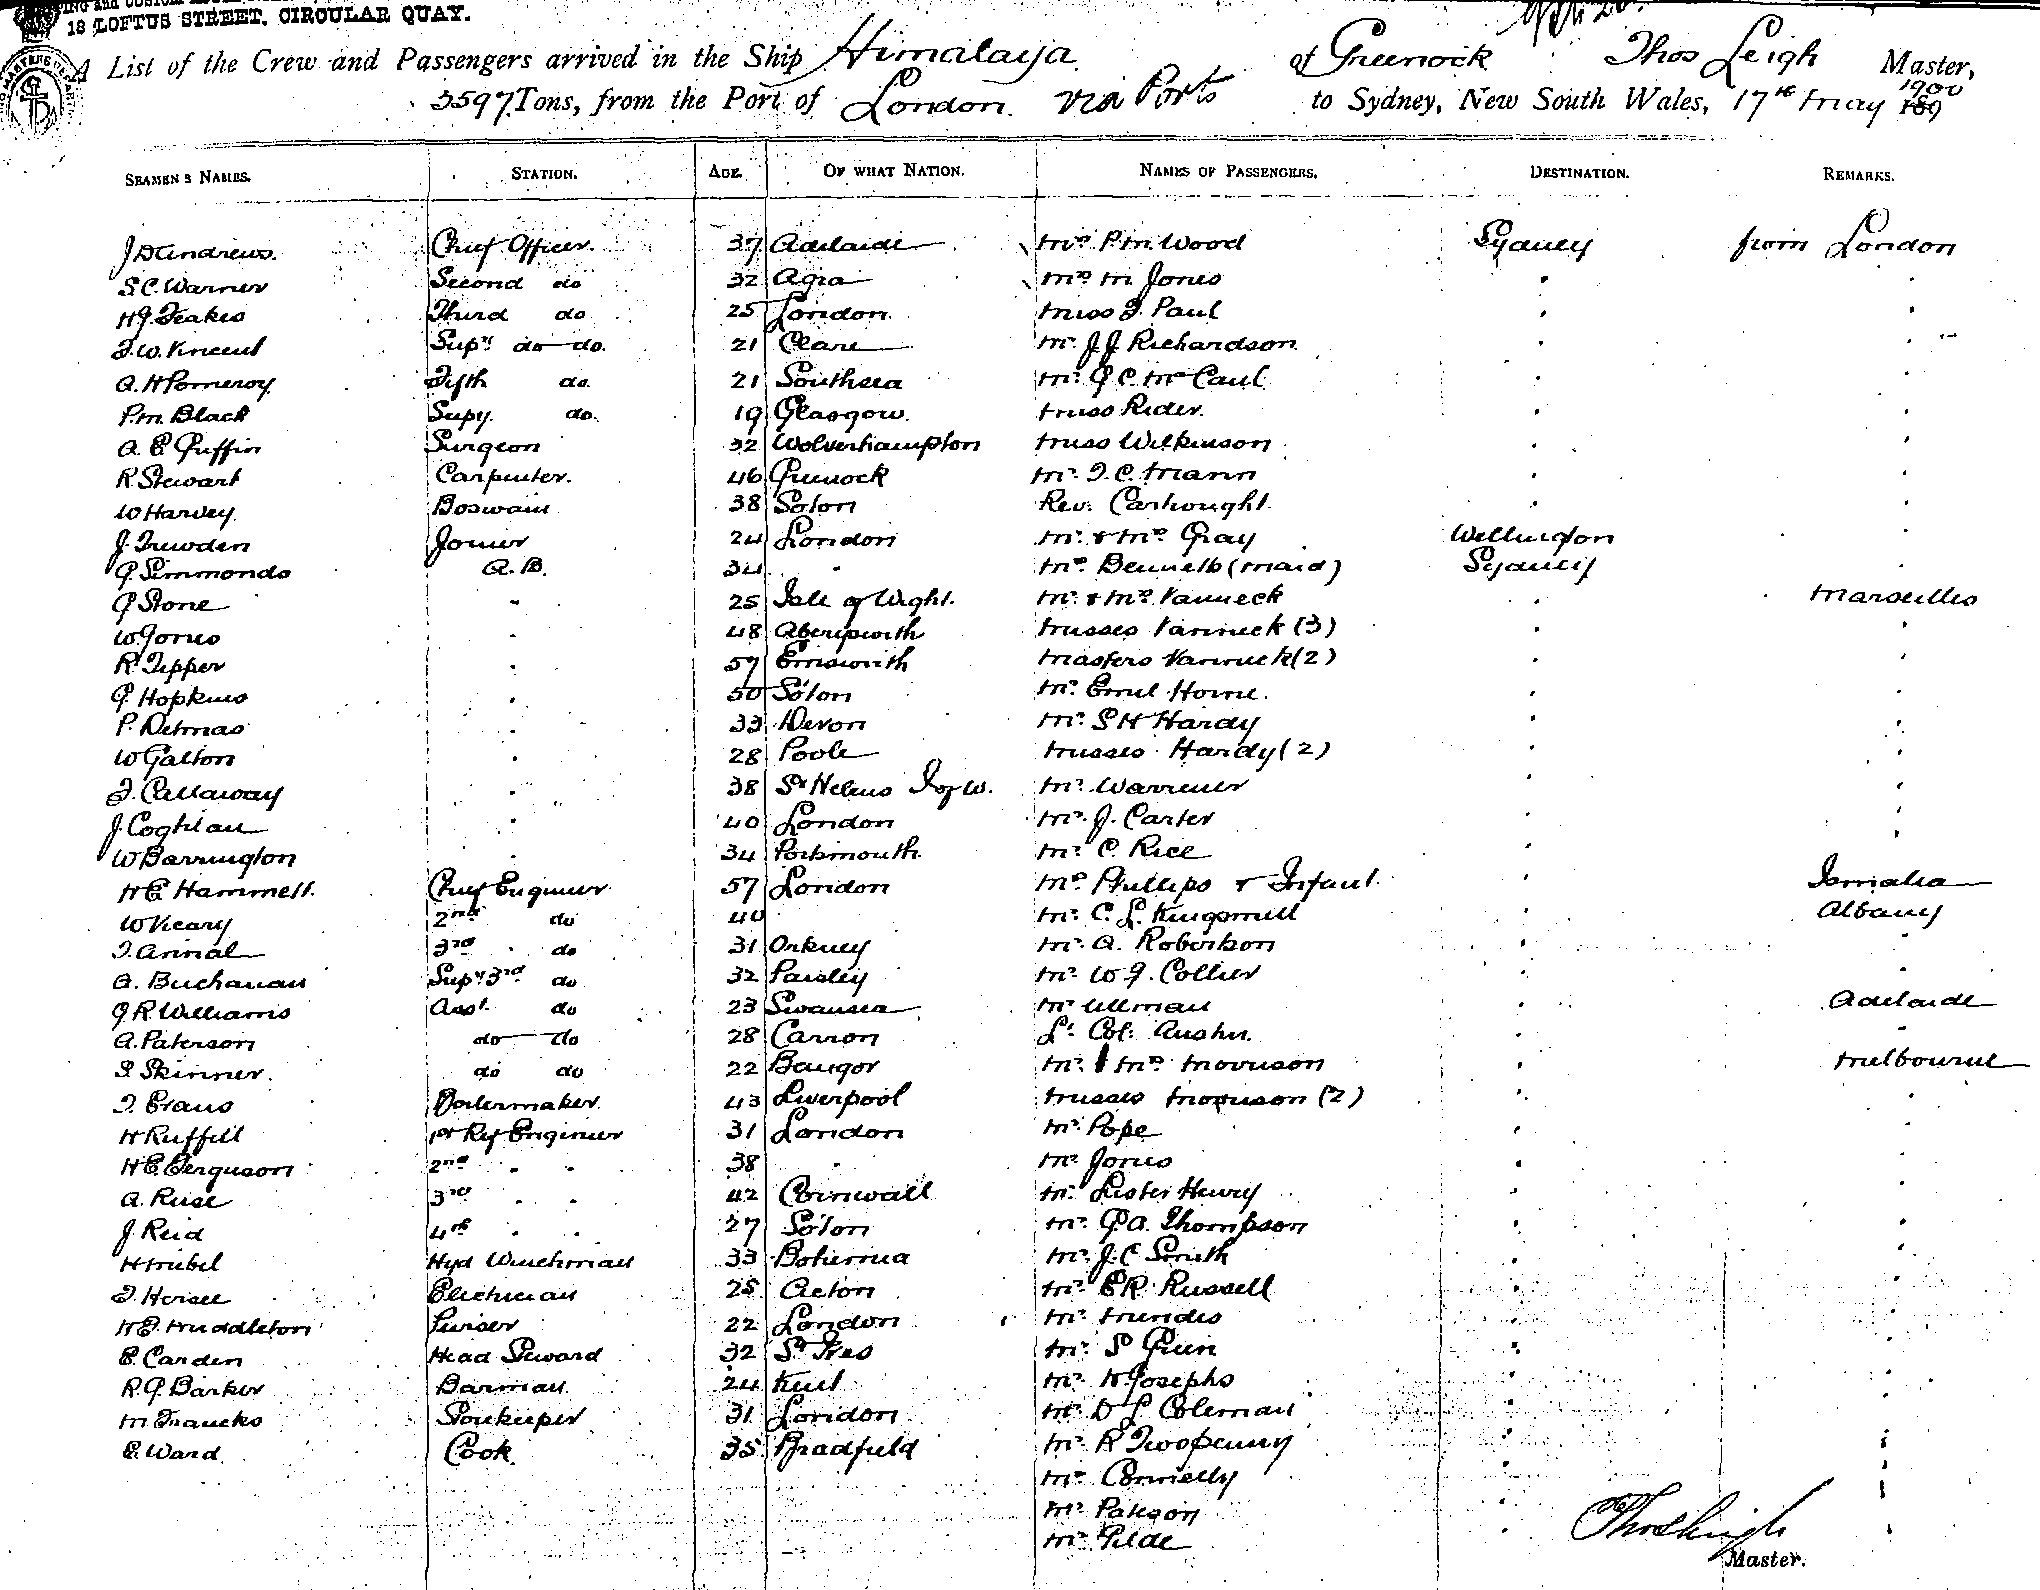 18 LOFTUS STREET, CIRCULAR QUAY.
A List of the Crew and Passengers arrived in the Ship Himalaya of Greenock Thos Leigh Master,
3597 Tons, from the Port of London via Ports to Sydney, New South Wales, 17th May 1900 189
SEAMEN'S NAMES. STATION. AGE. OF WHAT NATION. NAMES OF PASSENGERS. DESTINATION. REMARKS.
J D Andrews. Chief Officer. 37 Adelaide Mrs P.M. Wood Sydney from London
S.C. Warner Second do 32 Agra Mrs M Jones " "
H.J. Feakes Third do 25 London. Miss J. Paul " "
F.W. Vincent Supy do do. 21 Clare Mr. J J Richardson " "
A. H Pomeroy. Fifth do. 21 Southsea Mr. G C McCaul " "
P.M. Black Supy. do. 19 Glasgow. Miss Rider. " "
A. E Griffin Surgeon 32 Wolverhampton Miss Wilkinson " "
R Stewart Carpenter. 46 Greenock Mr. F. C. Mann " "
W Harvey. Boswain 38 So'ton Rev. Cartwright " "
J. Trewden Joiner 24 London Mr. & Mrs. Gray Wellington "
G. Simmonds A.B. 34 " Mrs. Bennetts (maid) Sydney
G Stone " 25 Isle of Wight. Mr. & Mrs. Vanneck " Marseilles
W Jones " 48 Aberystwith Misses Vanneck (3) " "
R. Tipper " 57 Emsworth Masters Vanneck (2) " "
G Hopkins " 50 So'ton Mr. Emil Horne. " "
P. Detmas " 33 Devon Mr. S H Hardy " "
W Galton " 28 Poole Misses Hardy (2) " "
F. Callaway " 38 St Helens I of W. Mr. Warriner " "
J. Coghlan " 40 London Mr. J. Carter " "
W Barrington 34 Portsmouth. Mr. C. Rice " "
H E Hammett. Chief Engineer 57 London Mrs Phillips & Infant. " Ismalia
W Keary 2nd do 40 Mr. C. L. Kingsmill " Albany
J. Annal 3rd do 31 Orkney Mr. A. Robertson " "
A. Buchanan Supy 3rd do 32 Paisley Mr. W J. Collier " "
G R Williams Asst. do 23 Swansea Mr Ullman " Adelaide
A. Paterson do do 28 Carron Lt. Col: Austin. " "
S Skinner. do do 22 Bangor Mr. & Mrs. Morrison " Melbourne
J. Evans Boilermaker 43 Liverpool Misses Morrison (2) " "
H Ruffill 1st Rf Engineer 31 London Mr. Pope " "
H E Ferguson 2nd " " 38 " Mr. Jones " "
A. Ruse 3rd " " 42 Cornwall Mr. Lister Henry " "
J. Reid 4th " " 27 So'ton Mr. G.A. Thompson " "
Hyd Winchman 33 Bohemia Mr. J. C Smith " "
Electrician 25 Acton Mr. E R Russell " "
H E Muddleton 22 London Mr. " "
E. Carden Head Steward 32 Mr. S " "
R. G. Barker Barman. 24 Kent Mr. H Josephs " "
M Francks Storekeeper 31 London Mr. D L Coleman " "
E. Ward Cook 35 Bradfield Mr. R Twopenny " "
Mr. Connelly " "
Mr. Patison " "
Mr. " "
Thos Leigh
Master.